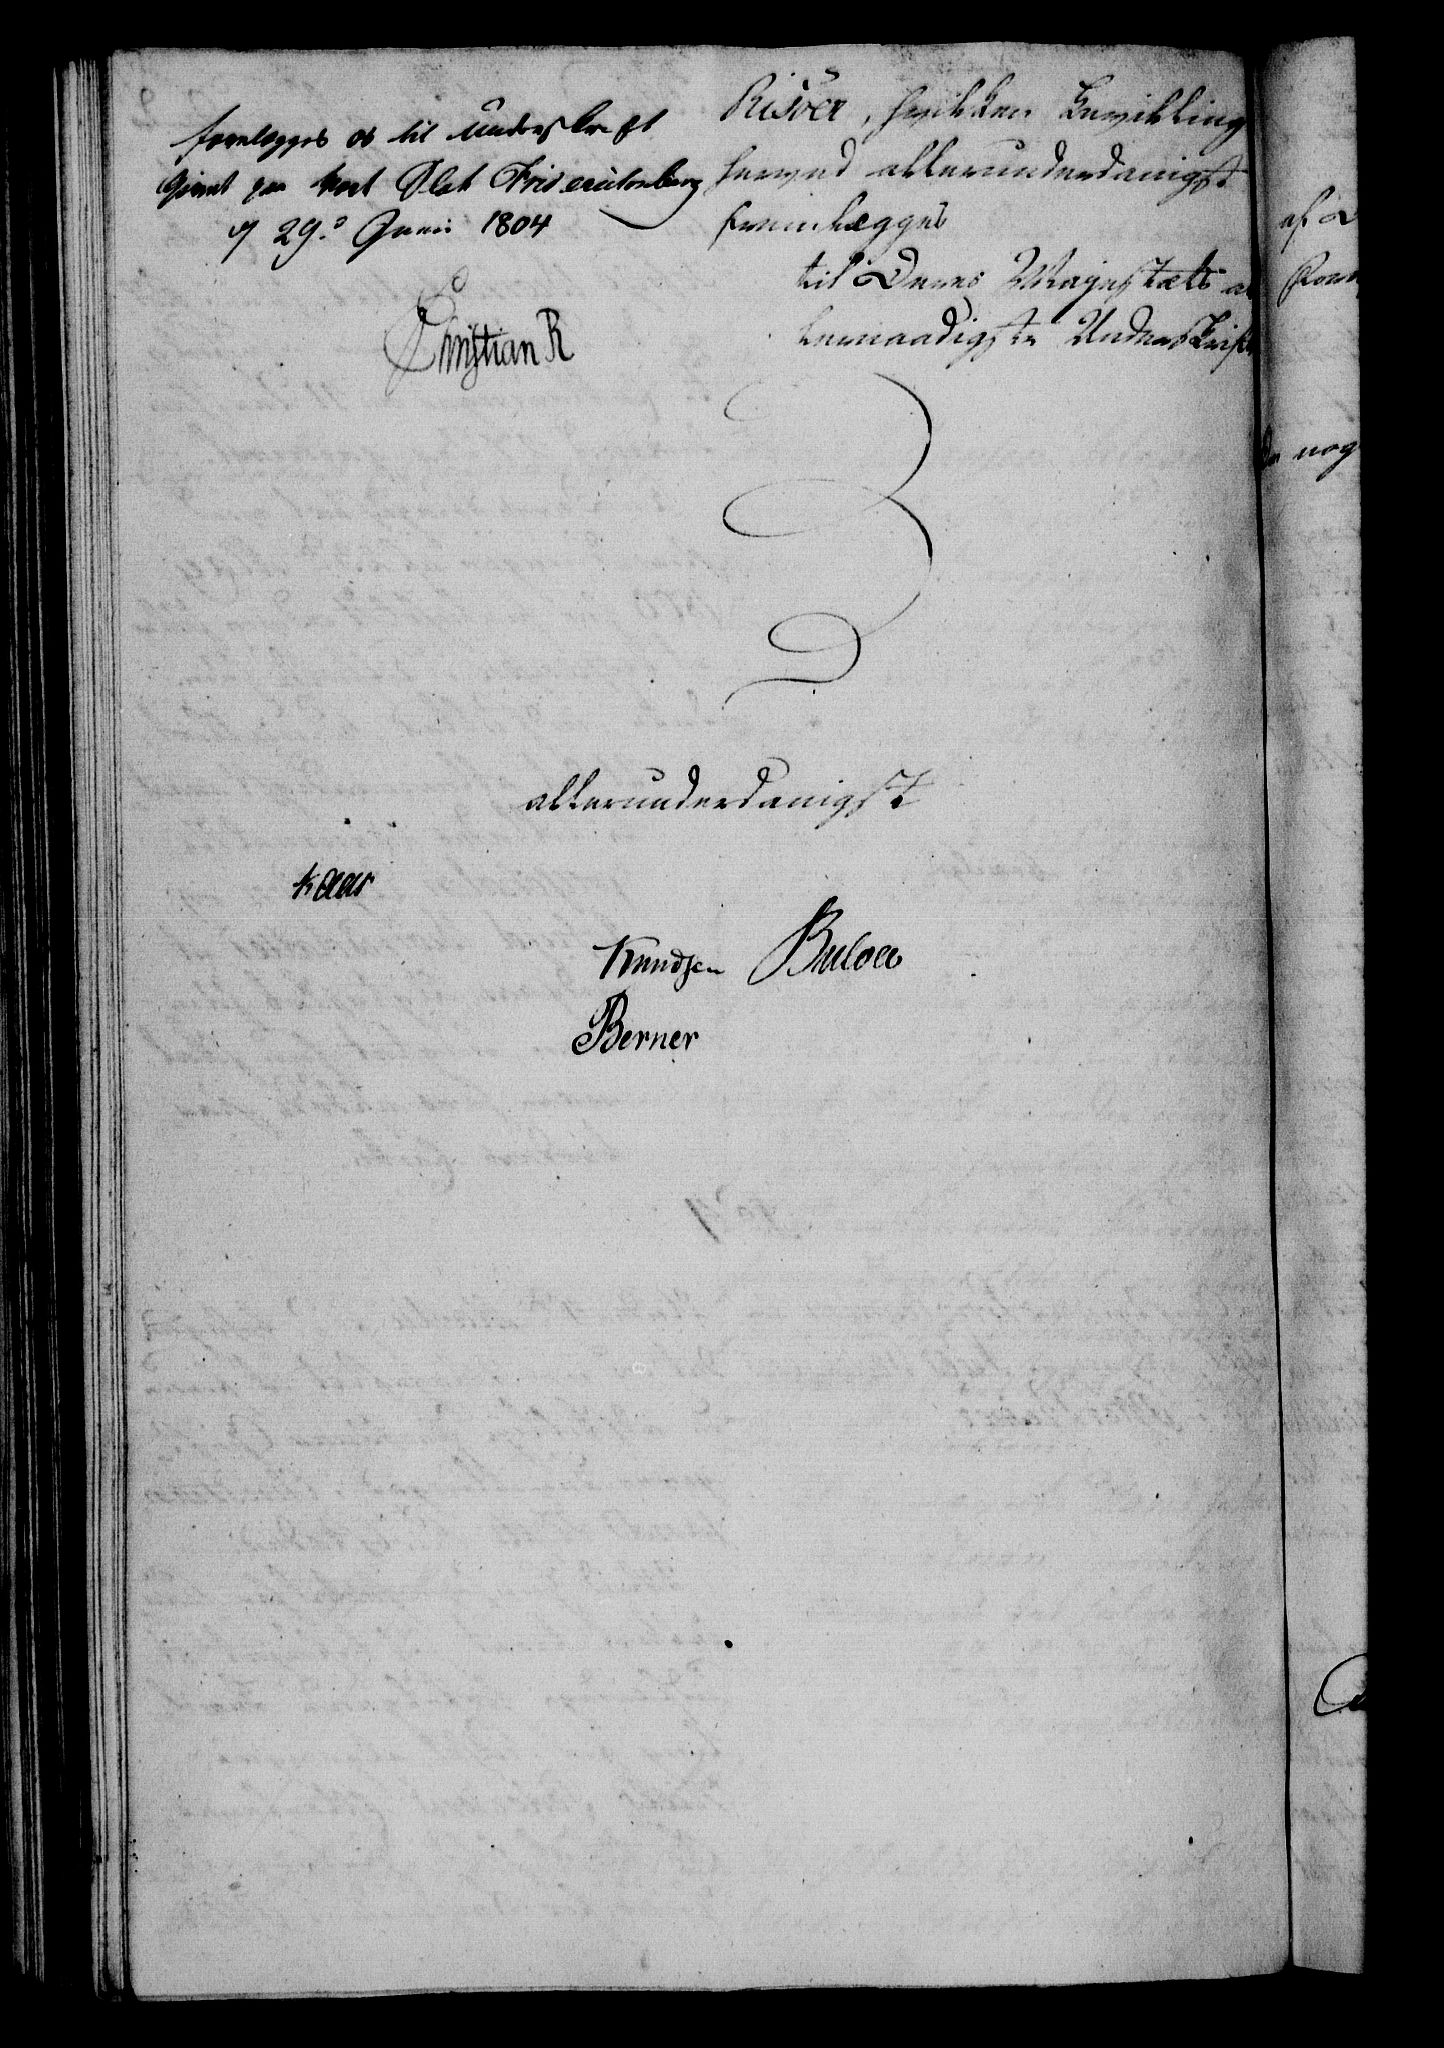 forelægges os til Underskrift
Givet paa vort Slot Friderichsberg
d 29.d Junii 1804
Christian R
Risöer, hvilken Bevilling
herved allerunderdanigst
fremlægges
til Deres Majestæts al
lernaadigste Underskrift
allerunderdanigst
Kaas
Knudsen Bülow
Berner
af D
nog